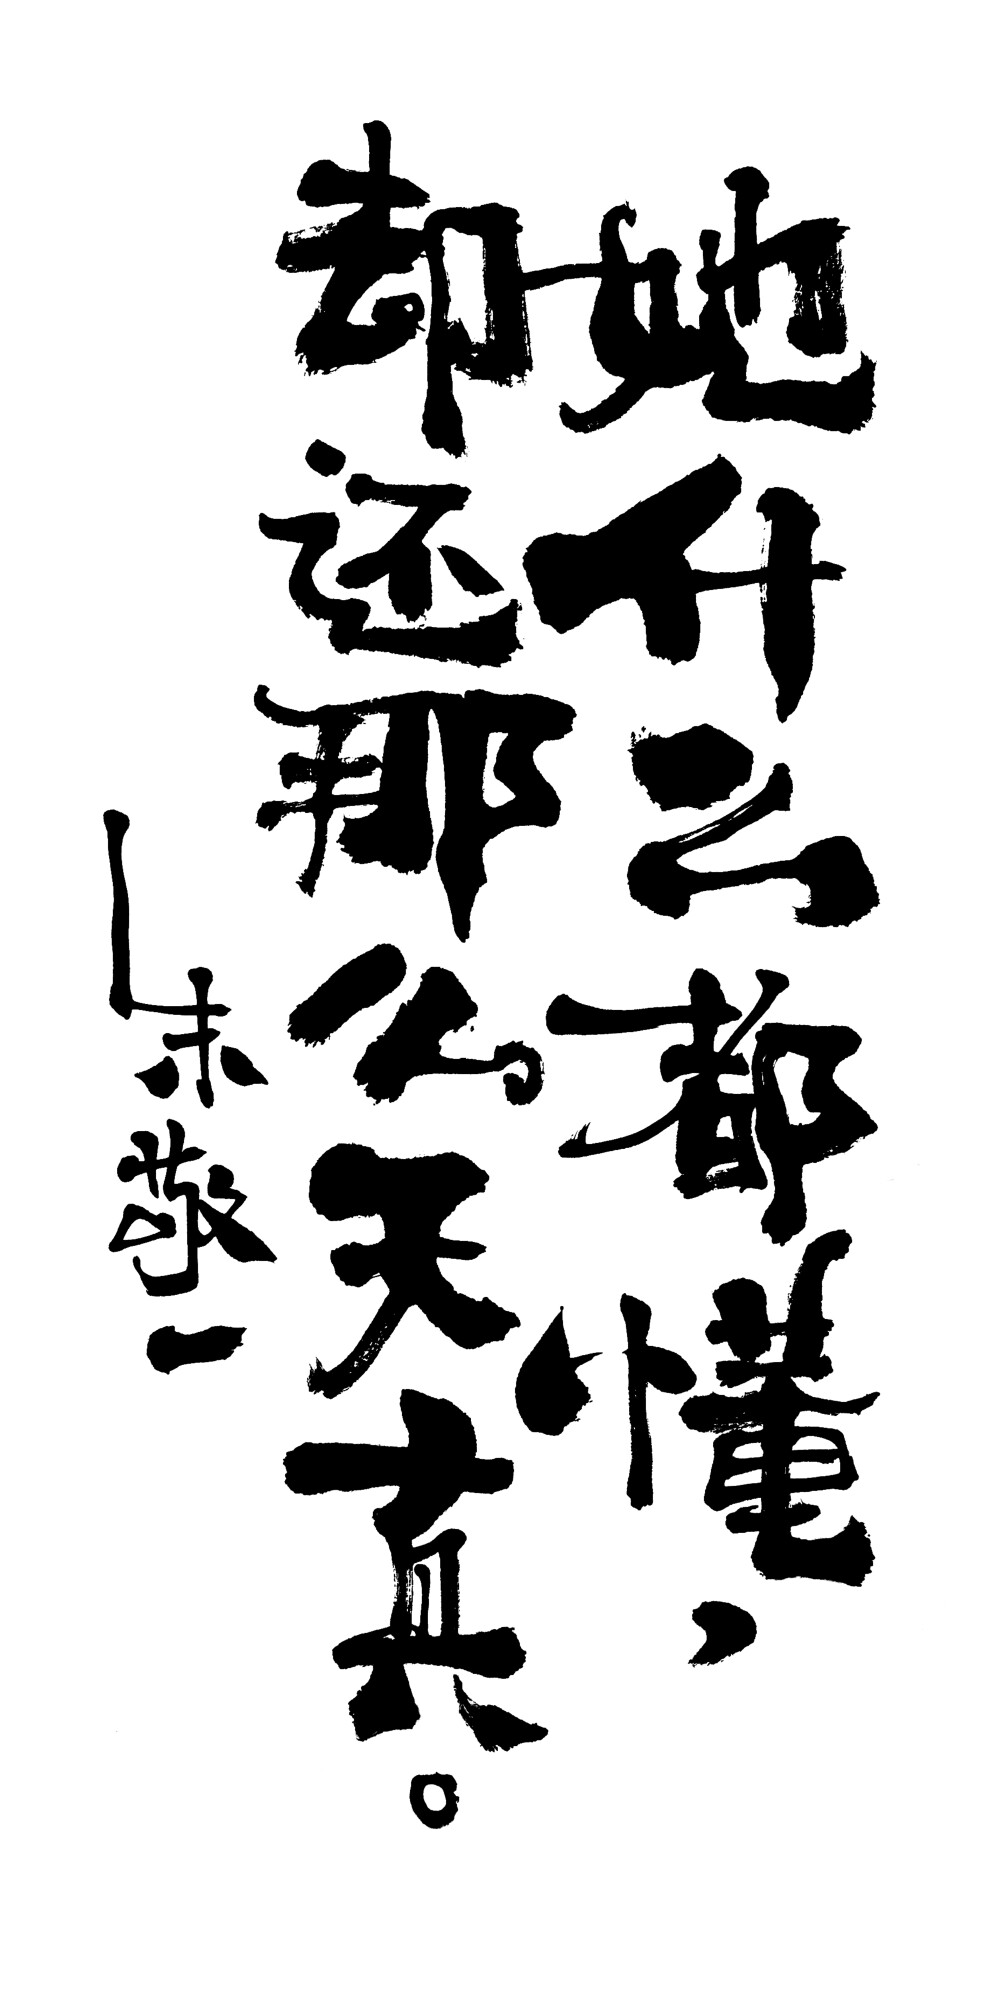 她什么都懂，
却还那么天真。
朱敬一